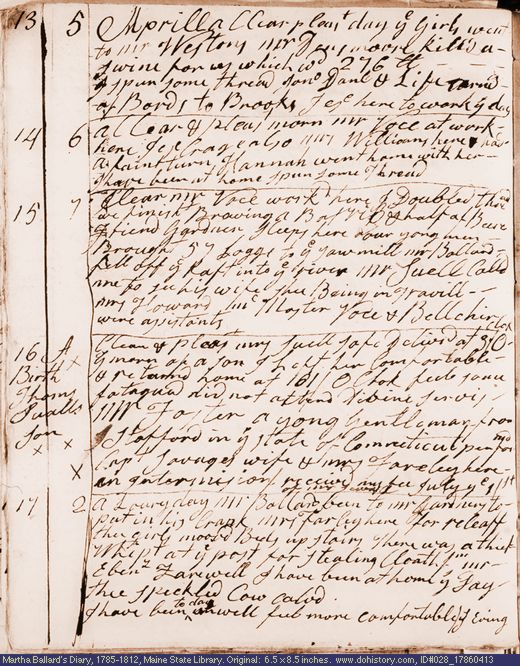 13 5 Aprill a Clear pleast day ye Girls went
to mr Westons mr Densmoore kill'd a
swine for us which wd 276 lb
I spun some thread Jonn Danl & Life
of Bords to Brooks Jese here to work ye day
14 6 a Clear & pleas morn mr Voce at work
here Jese Crage also mrs Williams here had
a faint turn Hannah went home with her
I have been at home spun some Thread
15 7 Clear mr Voce workd here I Doubled thrd
we finish Browing a Bar & half of Beer
Friend Gardner sleeps here our yong men
Brought 57 Loggs to ye saw mill mr Ballard
fell off ye Raft into ye river mr Suell Calld
me to see his wife she Being in gravill
mrs Howard Master Voce & Bellcher
were asistants
16 A Clear & pleast mrs Suell safe Delivd at 3 O Clok
Birth ye morn of a son I left her Comfortable
Thoms & returnd home at 10 O Clok feele some
Sualls fatagued did not attend Divine servis
son mr Foster a yong Gentleman from
x x Stafford in ye state of Connecticut performd
x Capt Savages wife & mrs Fareley here
an intermision receivd my fee July ye 1st
17 2 a Lowry day mr Ballard been to mr Gardners to
put in his Crank mrs Farley here for releaff
the girls moovd Beds up stairs there was a thief
Whipt at ye post for stealing Cloath fm mr
Ebenr Farewell I have been at home ys Day
thee speckled Cow Calvd
I have been unwell to day feel more comfortable ys Eving
Martha Ballard's Diary, 1785-1812, Maine State Library. Original: 6.5 x 8.5 inches. www.dohistory.com, ID#028_17860413